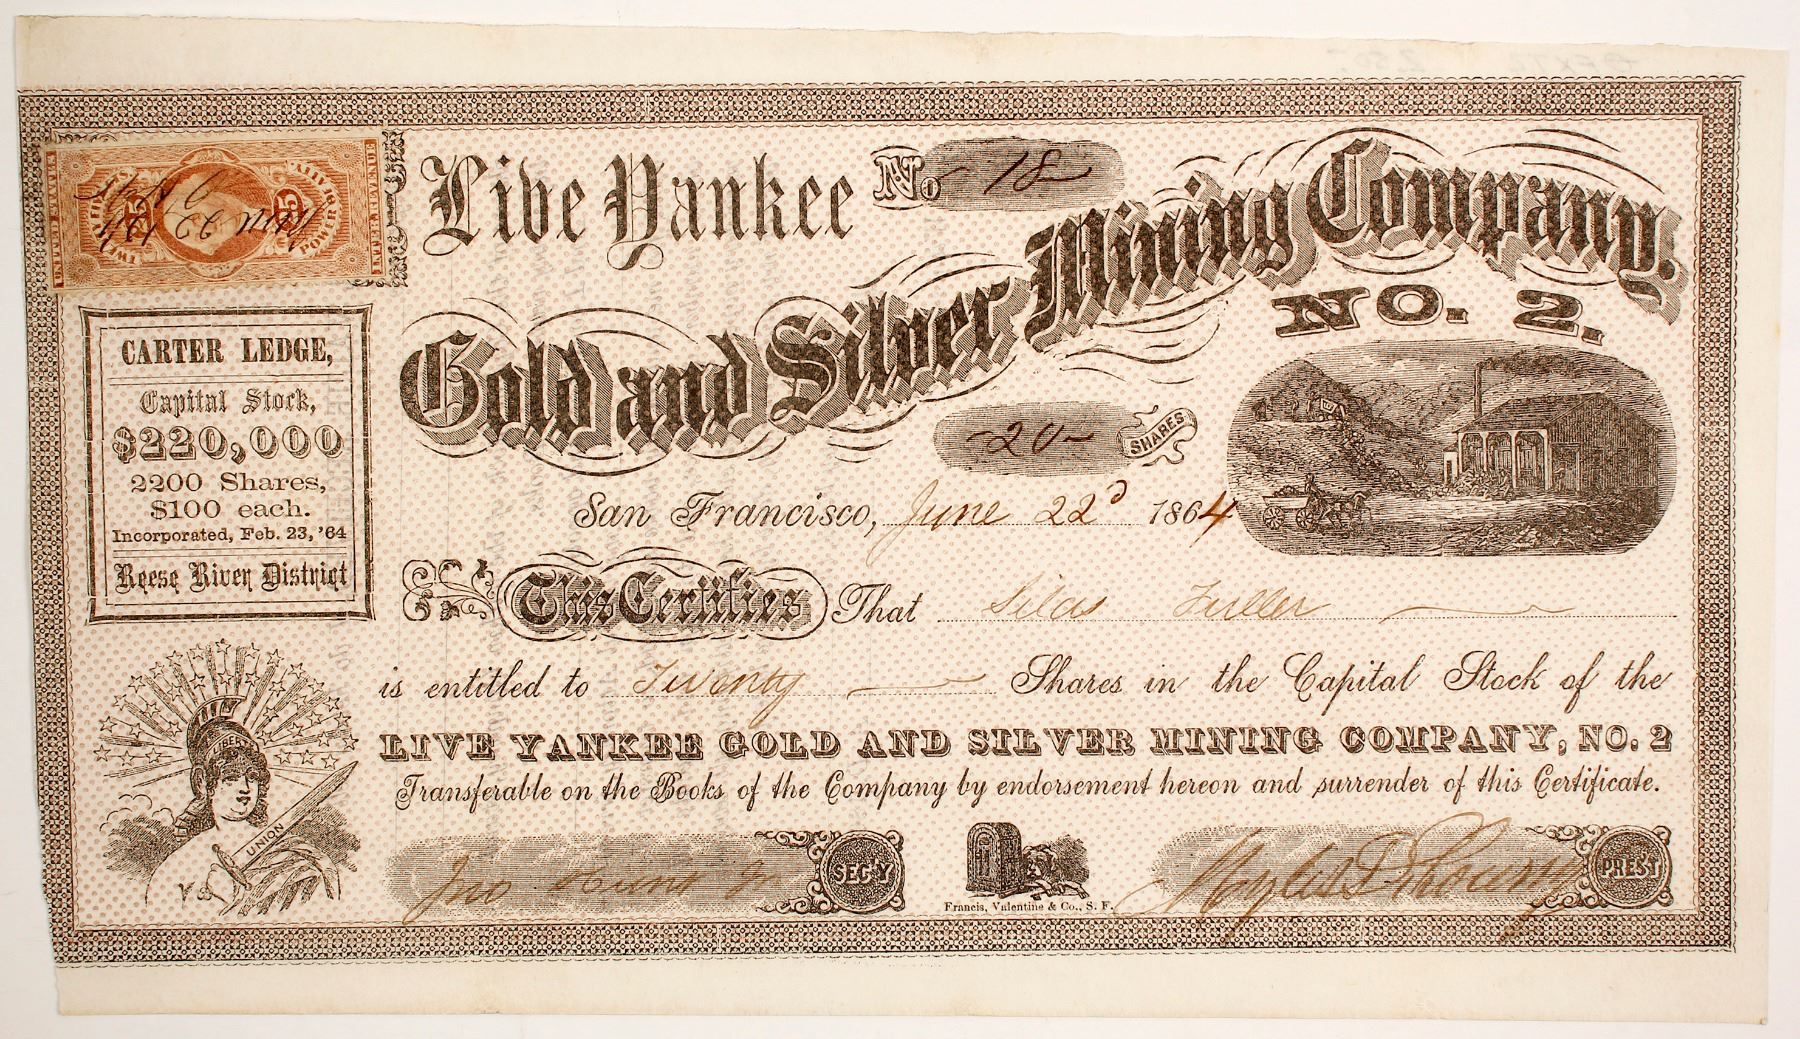 Live Yankee No. 18
Gold and Silver Mining Company,
NO. 2.
UNITED STATES
INTER. REVENUE
POWER
25
CARTER LEDGE,
Capital Stock,
$220,000
2200 Shares,
$100 each.
Incorporated, Feb. 23, '64
Reese River District
20 SHARES
San Francisco, June 22d 1864
This Certifies That Silas Fuller
is entitled to Twenty Shares in the Capital Stock of the
LIVE YANKEE GOLD AND SILVER MINING COMPANY, NO. 2
Transferable on the Books of the Company by endorsement hereon and surrender of this Certificate.
LIBERTY
UNION
Jno SEC'Y
PREST
Francis, Valentine & Co., S. F.